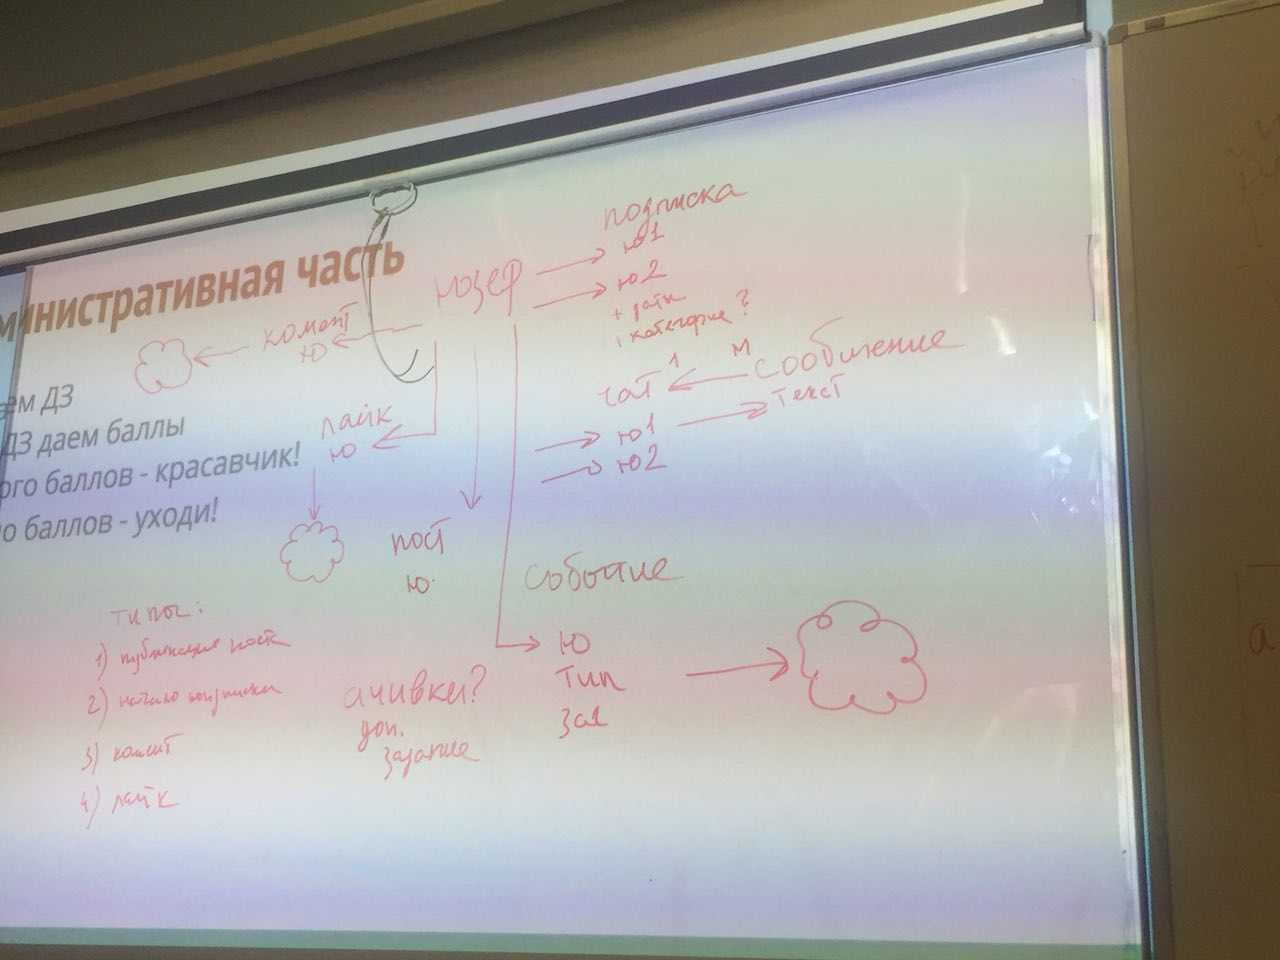 министративная часть
ем ДЗ
ДЗ даем баллы
ого баллов - красавчик!
о баллов - уходи!
юзер
подписка
ю1
ю2
+ даты
+ категорие?
комент
ю
лайк
ю
пост
ю
чат
1
М
сообщение
ю1
ю2
текст
событие
ю
тип
типы:
1) публикация поста
2) начало подписки
3) комент
4) лайк
ачивки?
доп.
задание